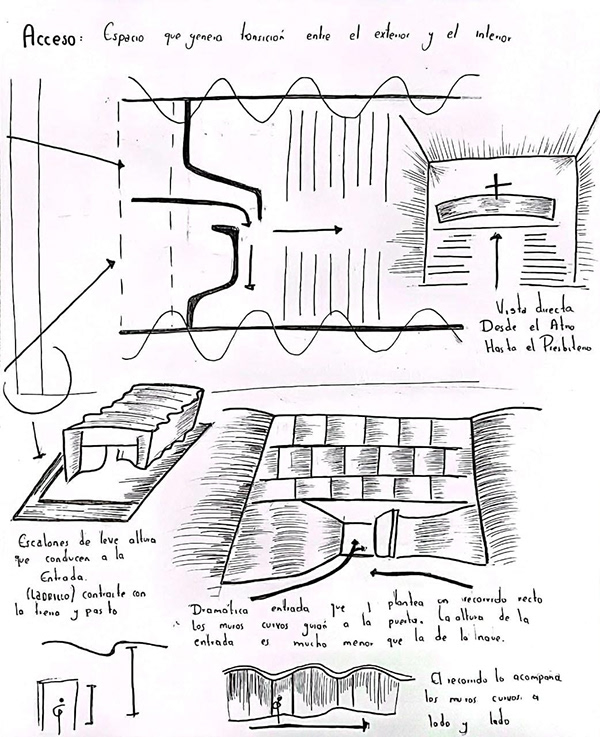 Acceso: Espacio que genera transición entre el exterior y el interior
Vista directa
Desde el Atrio
Hasta el Presbiterio
Escalones de leve altura
que conducen a la
Entrada.
(LADRILLO) contraste con
la tierra y pasto
Dramática entrada que plantea un recorrido recto
los muros curvos guian a la puerta. La altura de la
entrada es mucho menor que la de la nave.
El recorrido lo acompaña
los muros curvos a
lado y lado